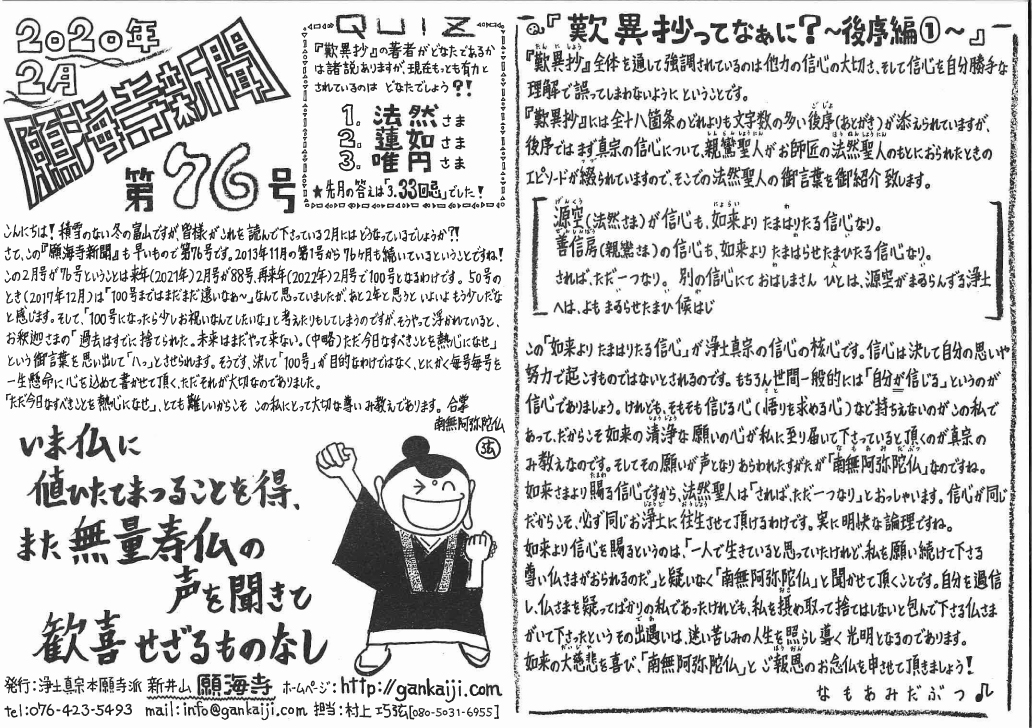 2020年
2月
願海寺新聞
第76号
QUIZ
『歎異抄』の著者がどなたであるか
は諸説ありますが、現在もっとも有力と
されているのは どなたでしょう？!
1. 法然さま
2. 蓮如さま
3. 唯円さま
★先月の答えは「3. 33回忌」でした！
こんにちは！積雪のない冬の富山ですが、皆様がこれを読んで下さっている2月にはどうなっているでしょうか?!
さて、この『願海寺新聞』も早いもので第76号です。2013年11月の第1号から76ヶ月も続いているということですね！
この2月号が76号ということは来年(2021年)2月号が88号、再来年(2022年)2月号で100号となるわけです。50号の
とき(2017年12月)は「100号まではまだまだ遠いなぁ〜」なんて思っていましたが、あと2年と思うといよいよもう少しだな
と感じます。そして、「100号になったら少しお祝いなんてしたいな」と考えたりもしてしまうのですが、そうやって浮かれていると、
お釈迦さまの「過去はすでに捨てられた。未来はまだやって来ない。(中略)ただ今日なすべきことを熱心になせ」
という御言葉を思い出して「ハっ」とさせられます。そうです、決して「100号」が目的なわけではなく、とにかく毎号毎号を
一生懸命に心を込めて書かせて頂く、ただそれが大切なのでありました。
「ただ今日なすべきことを熱心になせ」、とても難しいからこそ この私にとって大切な尊いみ教えであります。合掌
南無阿弥陀仏
弦
いま仏に
値ひたてまつることを得、
また無量寿仏の
声を聞きて
歓喜せざるものなし
発行：浄土真宗本願寺派 新井山 願海寺 ホームページ：http://gankaiji.com
tel：076-423-5493 mail：info@gankaiji.com 担当：村上巧弦[080-5031-6955]
『歎異抄ってなぁに？〜後序編①〜』
『歎異抄』全体を通して強調されているのは他力の信心の大切さ、そして信心を自分勝手な
理解で誤ってしまわないように ということです。
『歎異抄』には全十八箇条のどれよりも文字数の多い後序(あとがき)が添えられていますが、
後序では まず真宗の信心について、親鸞聖人がお師匠の法然聖人のもとにおられたときの
エピソードが綴られていますので、そこでの法然聖人の御言葉を御紹介致します。
源空(法然さま)が信心も、如来よりたまはりたる信心なり。
善信房(親鸞さま)の信心も、如来よりたまはらせたまひたる信心なり。
されば、ただ一つなり。 別の信心にておはしまさん ひとは、源空がまゐらんずる浄土
へは、よもまゐらせたまひ候はじ
この「如来よりたまはりたる信心」が浄土真宗の信心の核心です。信心は決して自分の思いや
努力で起こすものではないとされるのです。もちろん世間一般的には「自分が信じる」というのが
信心でありましょう。けれども、そもそも信じる心(悟りを求める心)など持ちえないのがこの私で
あって、だからこそ如来の清浄な願いの心が私に至り届いて下さっていると頂くのが真宗の
み教えなのです。そしてその願いが声となりあらわれたすがたが「南無阿弥陀仏」なのですね。
如来さまより賜る信心ですから、法然聖人は「されば、ただ一つなり」とおっしゃいます。信心が同じ
だからこそ、必ず同じお浄土に往生させて頂けるわけです。実に明快な論理ですね。
如来より信心を賜るというのは、「一人で生きていると思っていたけれど、私を願い続けて下さる
尊い仏さまがおられるのだ」と疑いなく「南無阿弥陀仏」と聞かせて頂くことです。自分を過信
し、仏さまを疑ってばかりの私であったけれども、私を摂め取って捨てはしないと包んで下さる仏さま
がいて下さったというその出遇いは、迷い苦しみの人生を照らし導く光明となるのであります。
如来の大慈悲を喜び、「南無阿弥陀仏」とご報恩のお念仏を申させて頂きましょう！
なもあみだぶつ♫